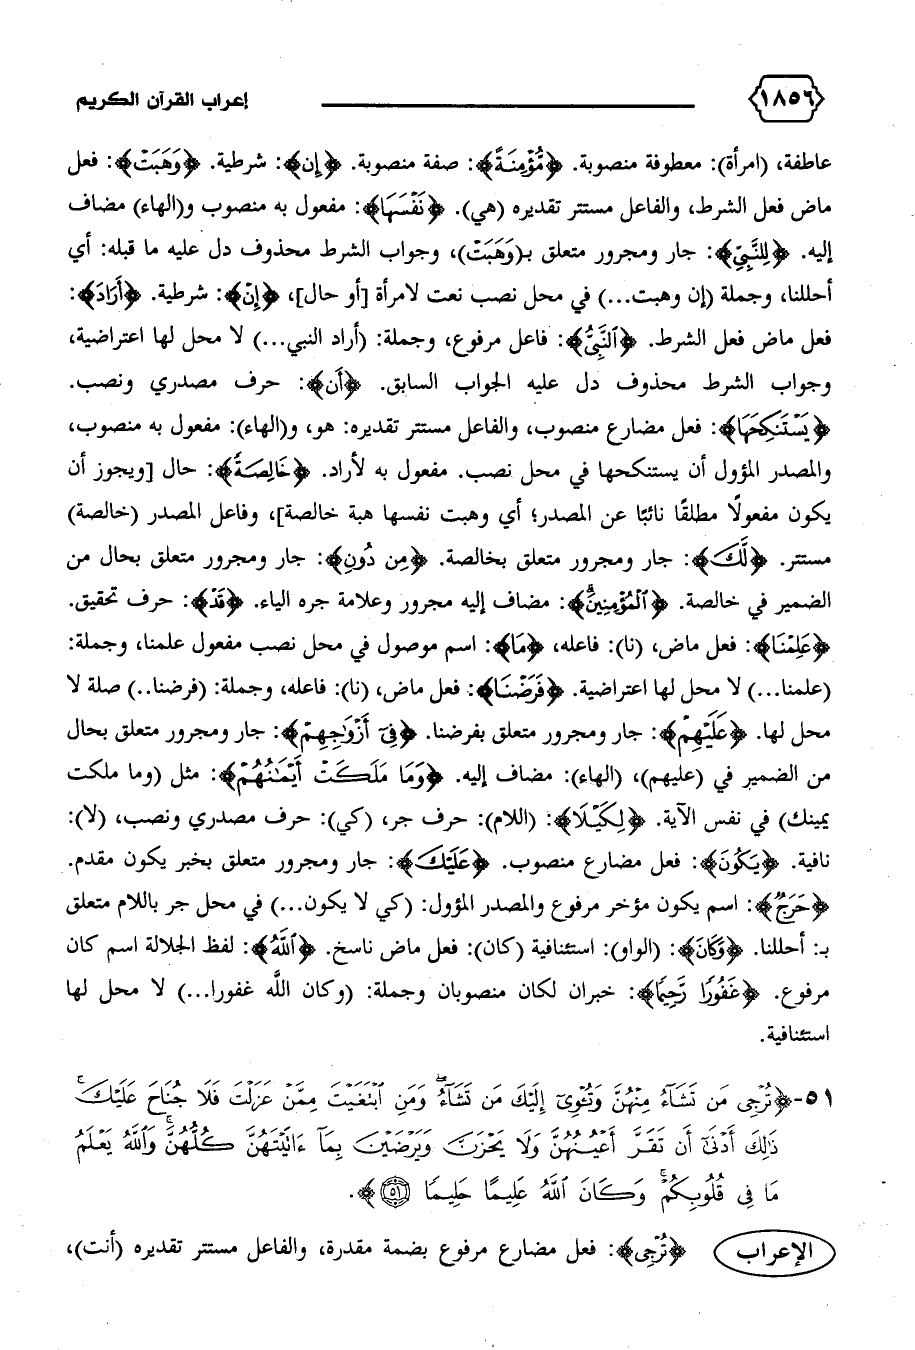 ١٨٥٦ إعراب القرآن الكريم
عاطفة، (امرأة): معطوفة منصوبة. ﴿مُّؤْمِنَةً﴾: صفة منصوبة. ﴿إِن﴾: شرطية. ﴿وَهَبَتْ﴾: فعل
ماض فعل الشرط، والفاعل مستتر تقديره (هي). ﴿نَفْسَهَا﴾: مفعول به منصوب و(الهاء) مضاف
إليه. ﴿لِلنَّبِيِّ﴾: جار ومجرور متعلق بـ(وَهَبَتْ)، وجواب الشرط محذوف دل عليه ما قبله: أي
أحللنا، وجملة (إن وهبت...) في محل نصب نعت لامرأة [أو حال]، ﴿إِنْ﴾: شرطية. ﴿أَرَادَ﴾:
فعل ماض فعل الشرط. ﴿ٱلنَّبِيُّ﴾: فاعل مرفوع، وجملة: (أراد النبي...) لا محل لها اعتراضية،
وجواب الشرط محذوف دل عليه الجواب السابق. ﴿أَن﴾: حرف مصدري ونصب.
﴿يَسْتَنكِحَهَا﴾: فعل مضارع منصوب، والفاعل مستتر تقديره: هو، و(الهاء): مفعول به منصوب،
والمصدر المؤول أن يستنكحها في محل نصب. مفعول به لأراد. ﴿خَالِصَةً﴾: حال [ويجوز أن
يكون مفعولًا مطلقًا نائبًا عن المصدر؛ أي وهبت نفسها هبة خالصة]، وفاعل المصدر (خالصة)
مستتر. ﴿لَّكَ﴾: جار ومجرور متعلق بخالصة. ﴿مِن دُونِ﴾: جار ومجرور متعلق بحال من
الضمير في خالصة. ﴿ٱلْمُؤْمِنِينَ﴾: مضاف إليه مجرور وعلامة جره الياء. ﴿قَدْ﴾: حرف تحقيق.
﴿عَلِمْنَا﴾: فعل ماض، (نا): فاعله، ﴿مَا﴾: اسم موصول في محل نصب مفعول علمنا، وجملة:
(علمنا...) لا محل لها اعتراضية. ﴿فَرَضْنَا﴾: فعل ماض، (نا): فاعله، وجملة: (فرضنا..) صلة لا
محل لها. ﴿عَلَيْهِمْ﴾: جار ومجرور متعلق بفرضنا. ﴿فِىٓ أَزْوَٰجِهِمْ﴾: جار ومجرور متعلق بحال
من الضمير في (عليهم)، (الهاء): مضاف إليه. ﴿وَمَا مَلَكَتْ أَيْمَٰنُهُمْ﴾: مثل (وما ملكت
يمينك) في نفس الآية. ﴿لِكَيْلَا﴾: (اللام): حرف جر، (كي): حرف مصدري ونصب، (لا):
نافية. ﴿يَكُونَ﴾: فعل مضارع منصوب. ﴿عَلَيْكَ﴾: جار ومجرور متعلق بخبر يكون مقدم.
﴿حَرَجٌ﴾: اسم يكون مؤخر مرفوع والمصدر المؤول: (كي لا يكون...) في محل جر باللام متعلق
بـ: أحللنا. ﴿وَكَانَ﴾: (الواو): استئنافية (كان): فعل ماض ناسخ. ﴿ٱللَّهُ﴾: لفظ الجلالة اسم كان
مرفوع. ﴿غَفُورًا رَّحِيمًا﴾: خبران لكان منصوبان وجملة: (وكان اللَّه غفورا...) لا محل لها
استئنافية.
٥١-﴿تُرْجِى مَن تَشَآءُ مِنْهُنَّ وَتُـْٔوِىٓ إِلَيْكَ مَن تَشَآءُۖ وَمَنِ ٱبْتَغَيْتَ مِمَّنْ عَزَلْتَ فَلَا جُنَاحَ عَلَيْكَۚ
ذَٰلِكَ أَدْنَىٰٓ أَن تَقَرَّ أَعْيُنُهُنَّ وَلَا يَحْزَنَّ وَيَرْضَيْنَ بِمَآ ءَاتَيْتَهُنَّ كُلُّهُنَّۚ وَٱللَّهُ يَعْلَمُ
مَا فِى قُلُوبِكُمْۚ وَكَانَ ٱللَّهُ عَلِيمًا حَلِيمًا ٥١﴾.
الإعراب ﴿تُرْجِى﴾: فعل مضارع مرفوع بضمة مقدرة، والفاعل مستتر تقديره (أنت)،